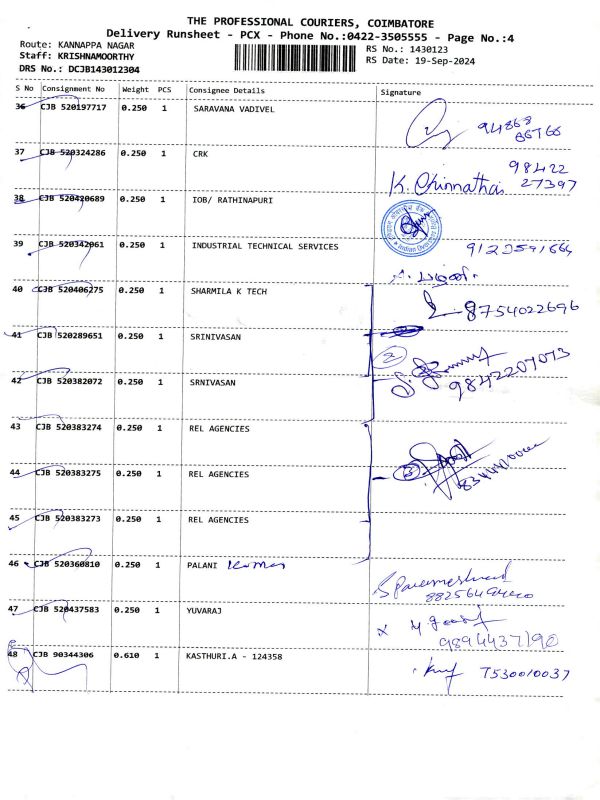 THE PROFESSIONAL COURIERS, COIMBATORE
Delivery Runsheet - PCX - Phone No.:0422-3505555 - Page No.:4
Route: KANNAPPA NAGAR
RS No.: 1430123
Staff: KRISHNAMOORTHY
RS Date: 19-Sep-2024
DRS No.: DCJB143012304
S No Consignment No Weight PCS Consignee Details Signature
36 CJB 520197717 0.250 1 SARAVANA VADIVEL
94868
86766
37 CJB 520324286 0.250 1 CRK
98422
K. Chinnathai 27397
38 CJB 520420689 0.250 1 IOB/ RATHINAPURI
39 CJB 520342061 0.250 1 INDUSTRIAL TECHNICAL SERVICES
9123591664
40 CJB 520406275 0.250 1 SHARMILA K TECH
8754022696
41 CJB 520289651 0.250 1 SRINIVASAN
2
42 CJB 520382072 0.250 1 SRNIVASAN
9842207073
43 CJB 520383274 0.250 1 REL AGENCIES
44 CJB 520383275 0.250 1 REL AGENCIES
3
45 CJB 520383273 0.250 1 REL AGENCIES
46 CJB 520360810 0.250 1 PALANI Kumar
47 CJB 520437583 0.250 1 YUVARAJ
9894437190
48 CJB 90344306 0.610 1 KASTHURI.A - 124358
7530010037